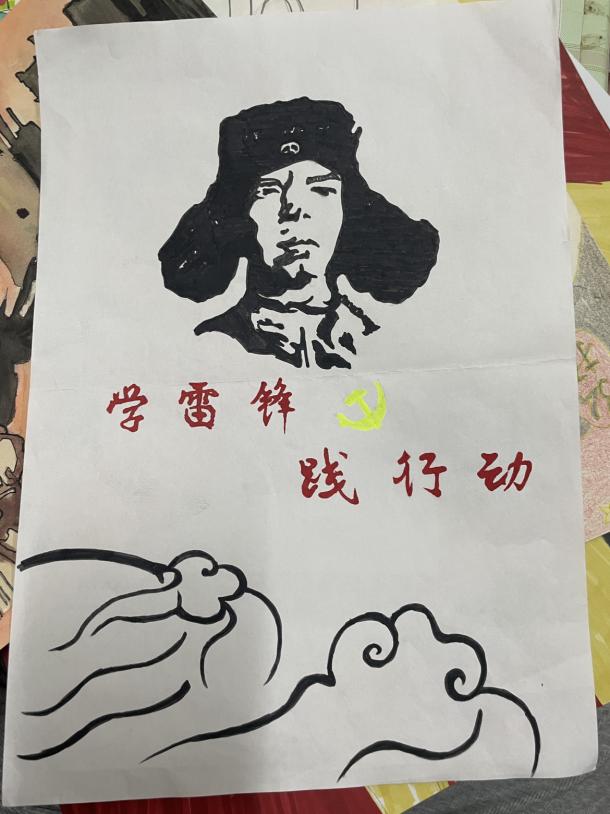 学雷锋
践行动